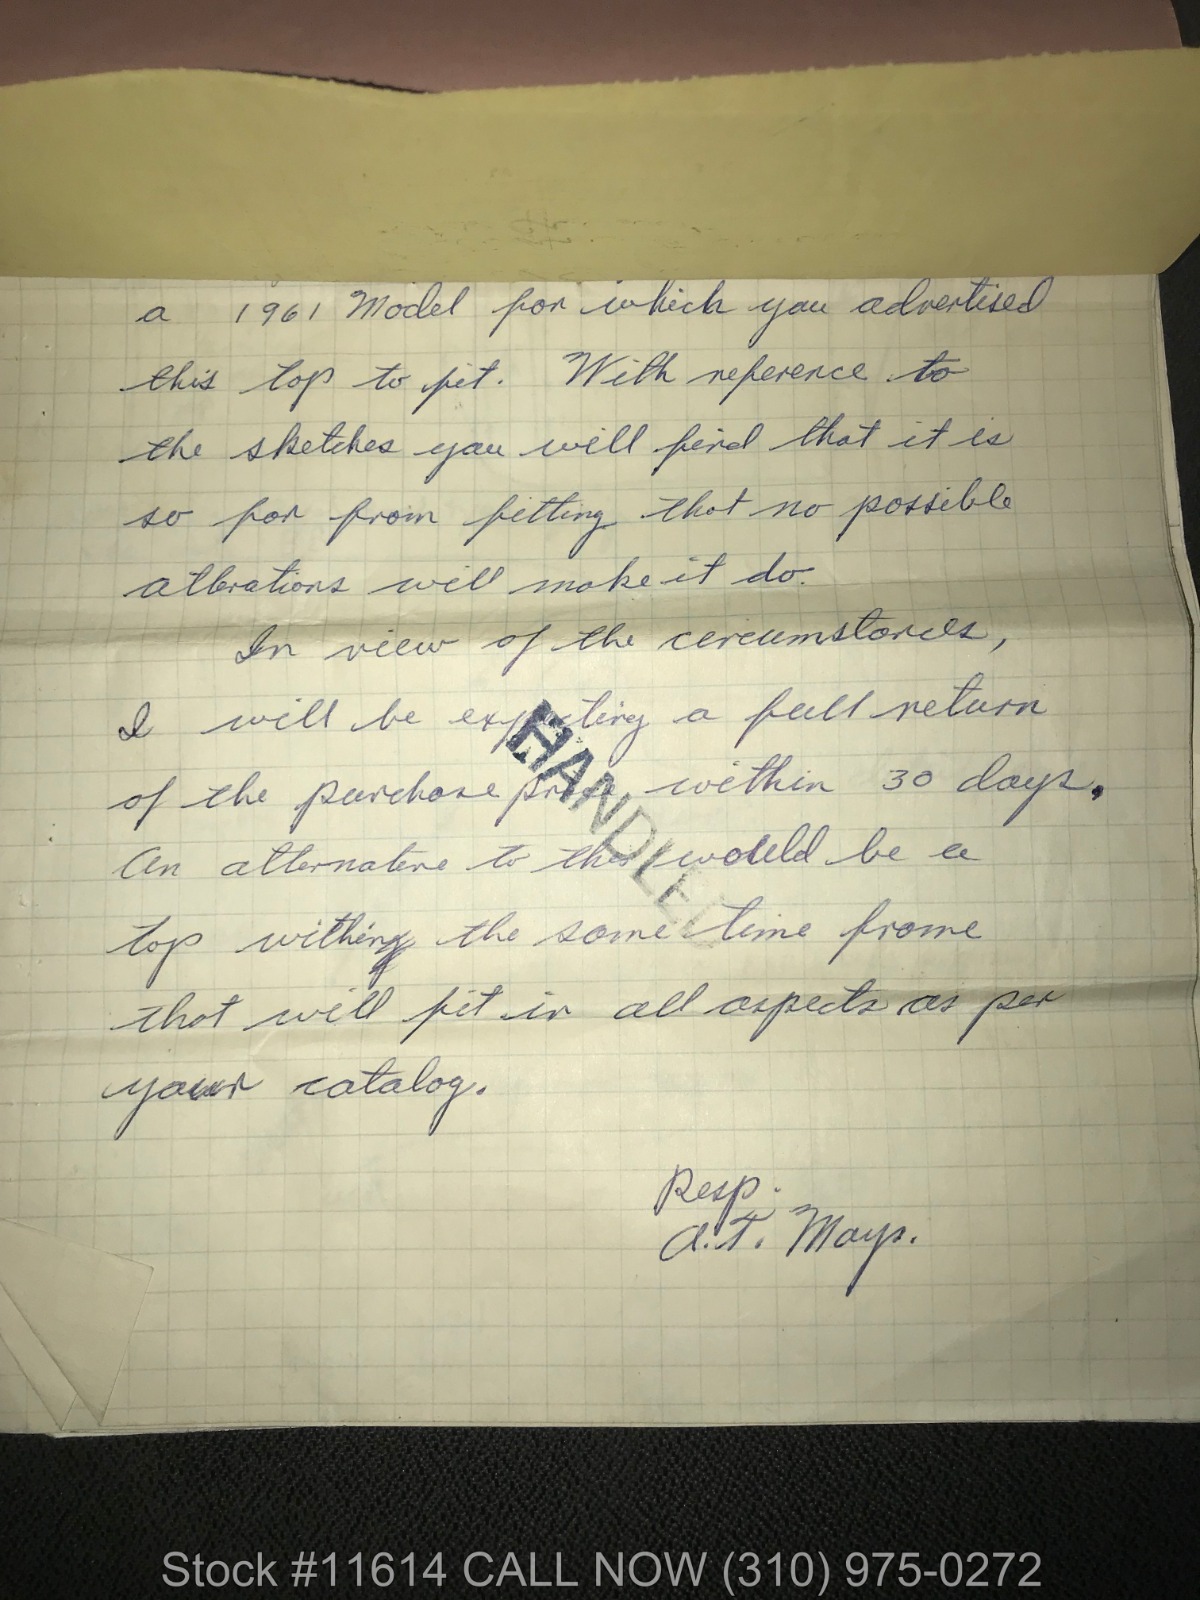 a 1961 Model for which you advertised
this top to fit. With reference to
the sketches you will find that it is
so far from fitting that no possible
altbrations will make it do.
In view of the circumstances,
I will be expecting a full return
of the purchase price within 30 days.
An alternative to this would be a
top withing the same time frame
that will fit in all aspects as per
your catalog.
Resp.
A.T. Mays.
HANDLED
Stock #11614 CALL NOW (310) 975-0272